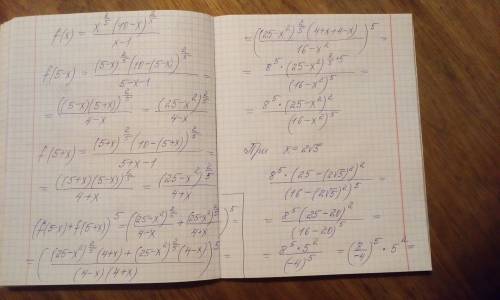 f(x) = x^(2/5) (10-x)^(2/5) / (x-1)
f(5-x) = (5-x)^(2/5) (10-(5-x))^(2/5) / (5-x-1) =
= ((5-x)(5+x))^(2/5) / (4-x) = (25-x²)^(2/5) / (4-x)
f(5+x) = (5+x)^(2/5) (10-(5+x))^(2/5) / (5+x-1) =
= ((5+x)(5-x))^(2/5) / (4+x) = (25-x²)^(2/5) / (4+x)
(f(5-x)+f(5+x))^5 = ((25-x²)^(2/5) / (4-x) + (25-x²)^(2/5) / (4+x))^5 =
= (((25-x²)^(2/5) (4+x) + (25-x²)^(2/5) (4-x)) / ((4-x)(4+x)))^5 =
= ((25-x²)^(2/5) (4+x+4-x) / (16-x²))^5 =
= 8^5 · (25-x²)^(2/5·5) / (16-x²)^5 =
= 8^5 · (25-x²)² / (16-x²)^5
При x=2√5
8^5 · (25-(2√5)²)² / (16-(2√5)²)^5 =
= 8^5 (25-20)² / (16-20)^5 =
= 8^5 · 5² / (-4)^5 = (8/-4)^5 · 5² =